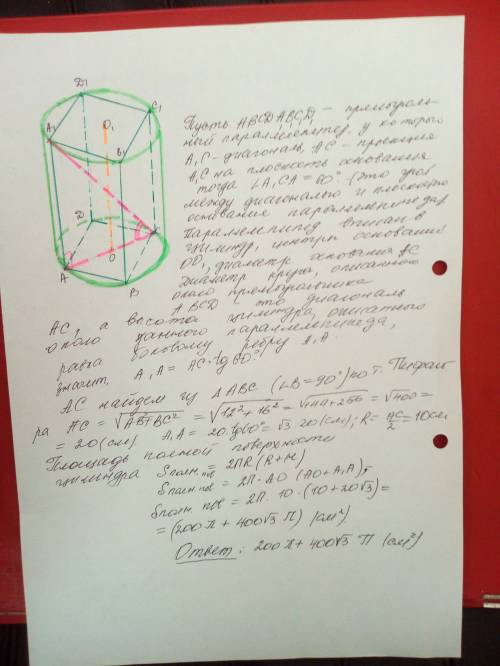 Д1
C1
O1
A1
B1
Д
C
O
A
B
Пусть ABCДA1B1C1Д1 – прямоуголь-
ный параллелепипед, у которого
A1C – диагональ, AC – проекция
A1C на плоскость основания
тогда ∠A1CA = 60° (это угол
между диагональю и плоскостью
основания параллелепипеда)
Параллелепипед вписан в
цилиндр, центры оснований
OO1, диаметр основания AC
диаметр круга, описанного
около прямоугольника
ABCD это диагональ
AC, а высота цилиндра, описанного
около данного параллелепипеда,
равна боковому ребру A1A
значит, A1A = AC·tg 60°
AC найдем из ΔABC (∠B = 90°) по т. Пифаго
ра AC = √AB²+BC² = √12²+16² = √144+256 = √400 =
= 20 (см) A1A = 20·tg60° = √3·20 (см); R = AC/2 = 10см
Площадь полной поверхности
цилиндра Sполн. пов = 2ПR(R+H)
Sполн. пов = 2П·AO (AO+A1A),
Sполн. пов = 2П·10·(10+20√3) =
= (200π + 400√3 П) (см²)
Ответ: 200π + 400√3 П (см²)